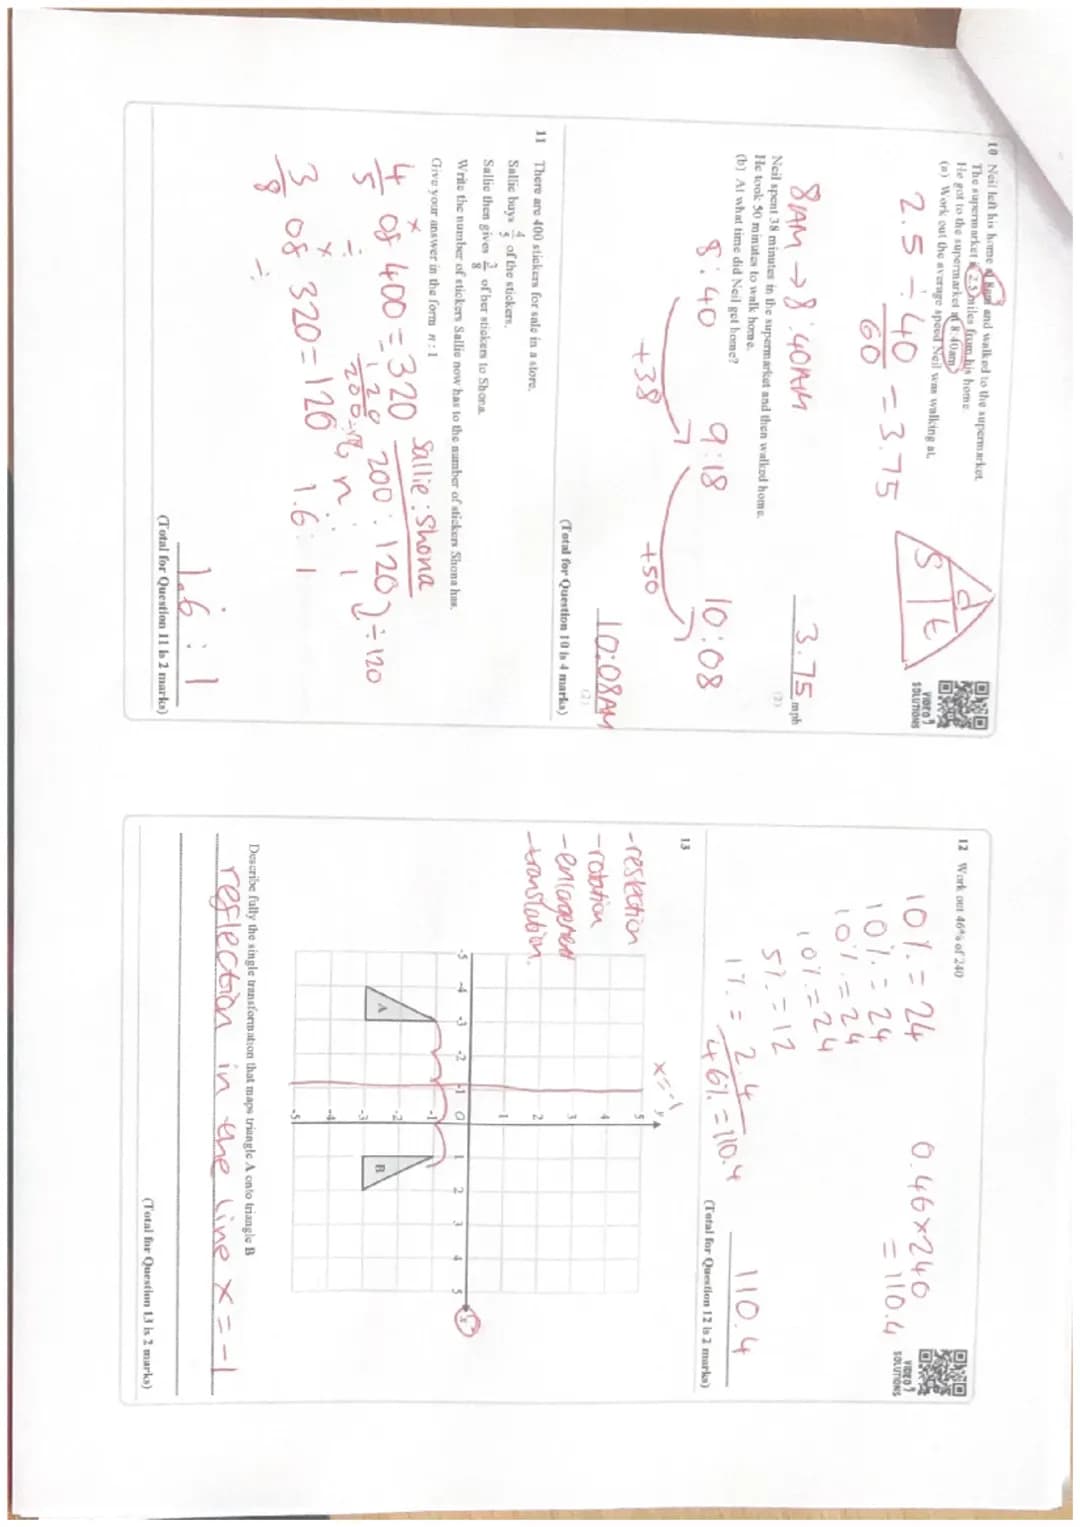 10 Neil left his home at 8am and walked to the supermarket.
The supermarket is 2.5 miles from his home.
He got to the supermarket at 8.40am
(a) Work out the average speed Neil was walking at.
VIDEO
SOLUTIONS
2.5 ÷ 40/60 = 3.75
d
s t
3.75 mph
(2)
8AM → 8:40AM
Neil spent 38 minutes in the supermarket and then walked home.
He took 50 minutes to walk home.
(b) At what time did Neil get home?
8:40 9:18 10:08
+38 +50
10:08AM
(2)
(Total for Question 10 is 4 marks)
11 There are 400 stickers for sale in a store.
Sallie buys 4/5 of the stickers.
Sallie then gives 3/8 of her stickers to Shona.
Write the number of stickers Sallie now has to the number of stickers Shona has.
Give your answer in the form n : 1
4/5 of 400 = 320
× ÷
Sallie : Shona
200 : 120
÷ 120
n : 1
3/8 of 320 = 120
× ÷
1.6 : 1
1.6 : 1
(Total for Question 11 is 2 marks)
12 Work out 46% of 240
VIDEO
SOLUTIONS
10% = 24
10% = 24
10% = 24
10% = 24
5% = 12
1% = 2.4
46% = 110.4
0.46×240
= 110.4
110.4
(Total for Question 12 is 2 marks)
13
-reflection
-rotation
-enlargement
-translation.
x=-1
y
5
4
3
2
1
-5 -4 -3 -2 -1 0 1 2 3 4 5 x
-1
-2
-3
-4
-5
A B
Describe fully the single transformation that maps triangle A onto triangle B
reflection in the line x=-1
(Total for Question 13 is 2 marks)